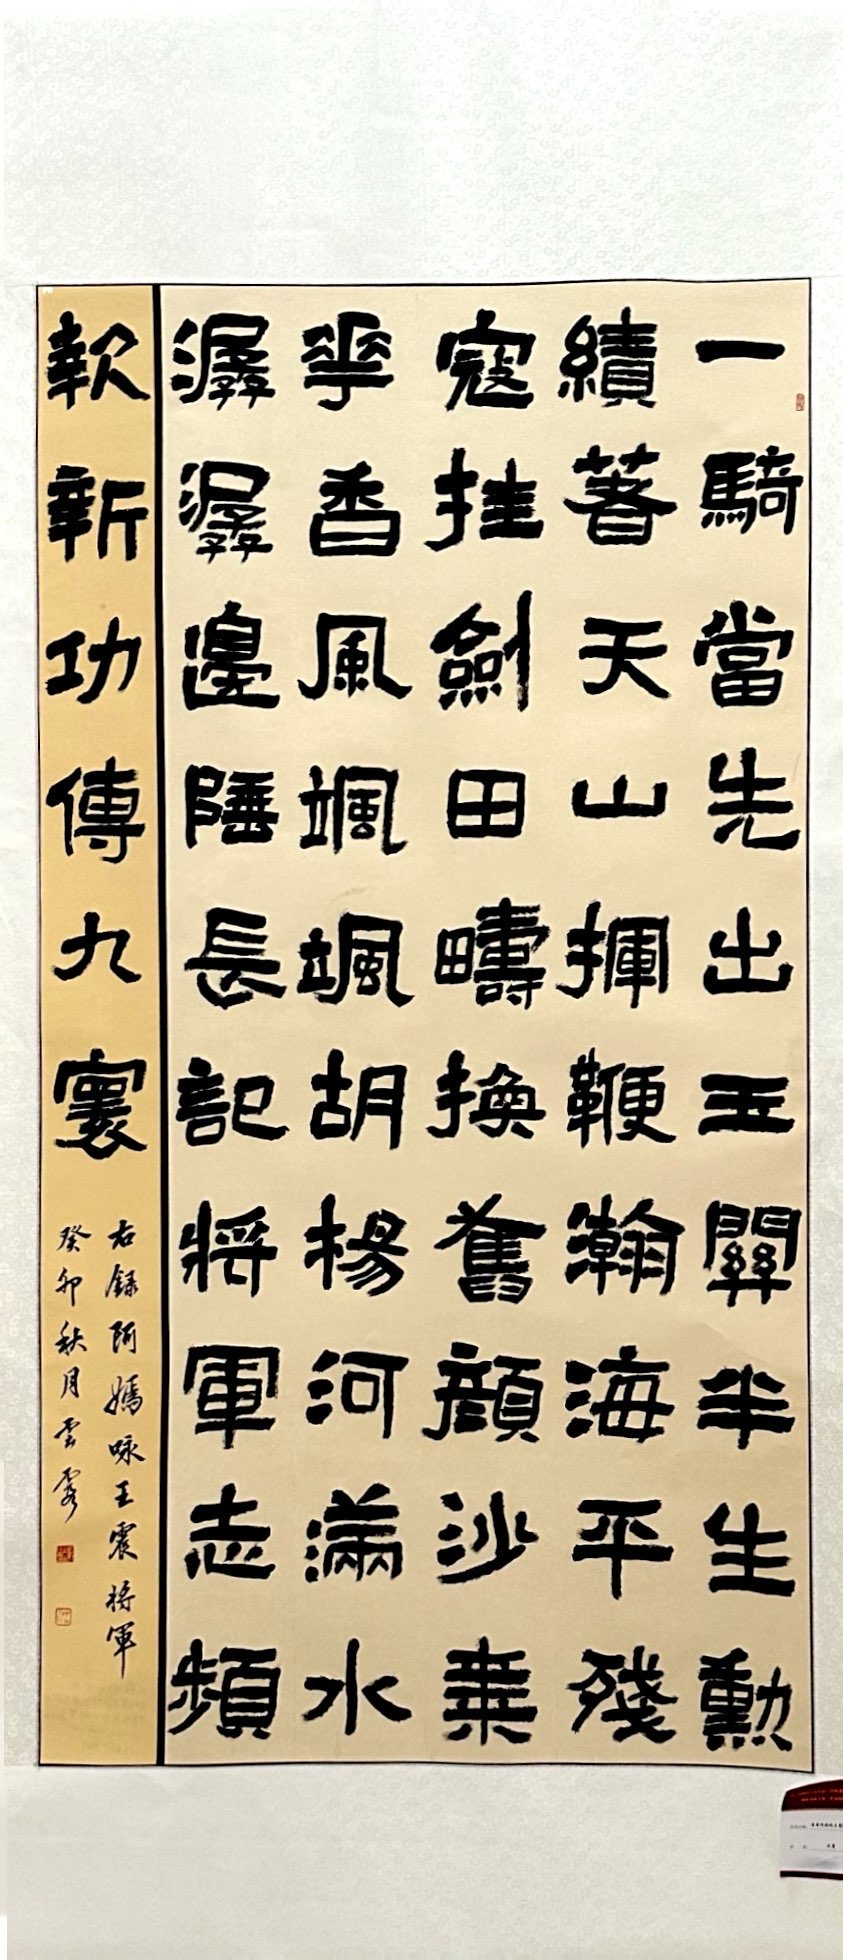 一騎當先出玉關半生勳
績著天山揮鞭瀚海平殘
寇挂劍田疇換舊顏沙棗
華香風颯颯胡楊河滿水
潺潺邊陲長記將軍志頻
報新功傳九寰
右録阿嫣咏王震将軍
癸卯秋月雲